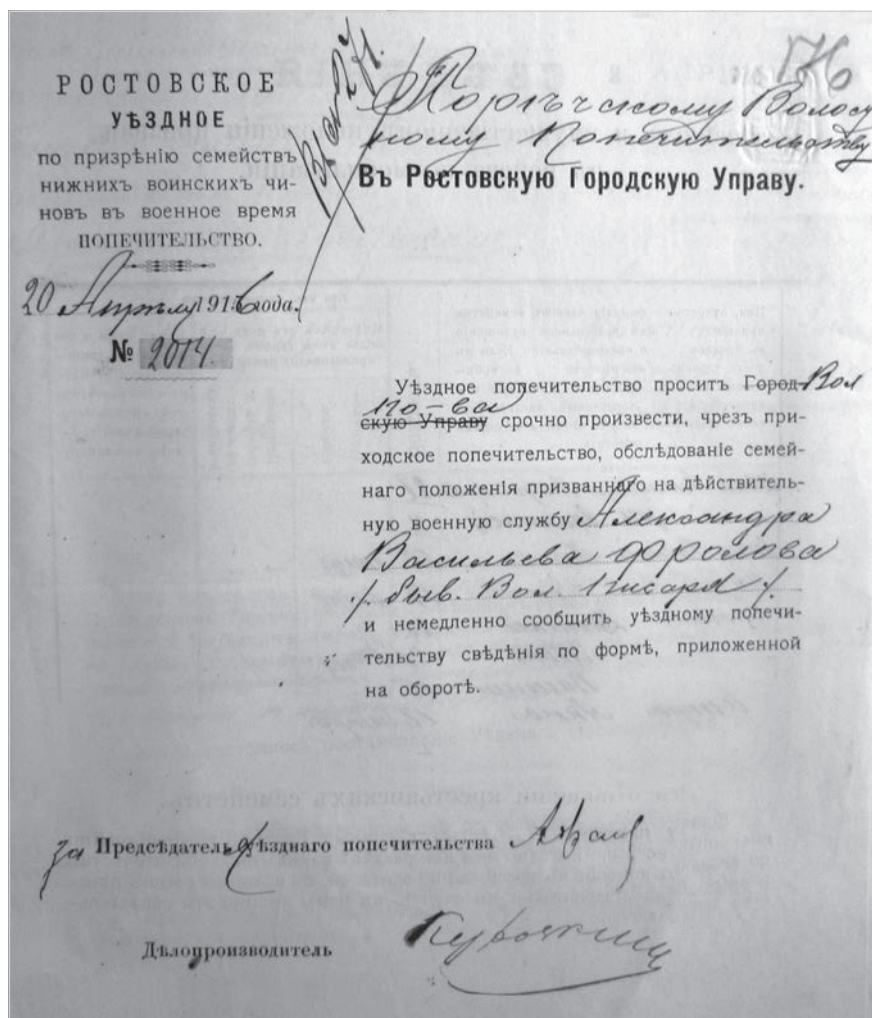 РОСТОВСКОЕ
УѢЗДНОЕ
по призрѣнію семействъ
нижнихъ воинскихъ чи-
новъ въ военное время
ПОПЕЧИТЕЛЬСТВО.
20 Апрѣля 1916 года.
№ 2014.
76
Порѣчскому Волост
ному Попечительству
Въ Ростовскую Городскую Управу.
Уѣздное попечительство проситъ Город- Вол
по-ва
скую Управу срочно произвести, чрезъ при-
ходское попечительство, обслѣдованіе семей-
наго положенія призваннаго на дѣйствитель-
ную военную службу Александра
Васильева Фролова
/. быв. Вол. писаря /.
и немедленно сообщить уѣздному попечи-
тельству свѣдѣнія по формѣ, приложенной
на оборотѣ.
за Предсѣдатель уѣзднаго попечительства
Дѣлопроизводитель Курочкин